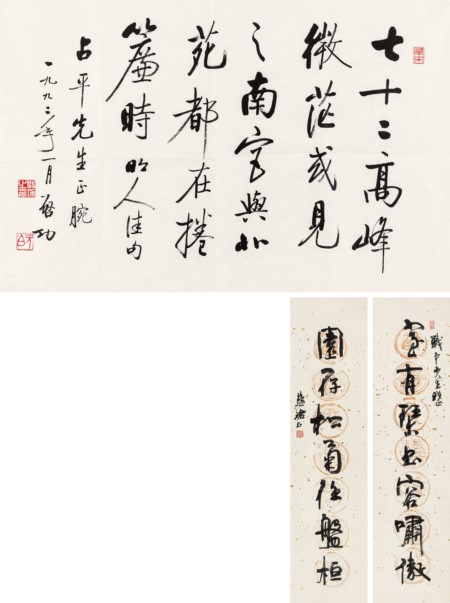 七十二高峰
微茫或見
之南宮與北
苑都在捲
簾時 明人佳句
占平先生正腕
一九九三年一月 啓功
先生
室有琴書容嘯傲
園存松菊任盤桓